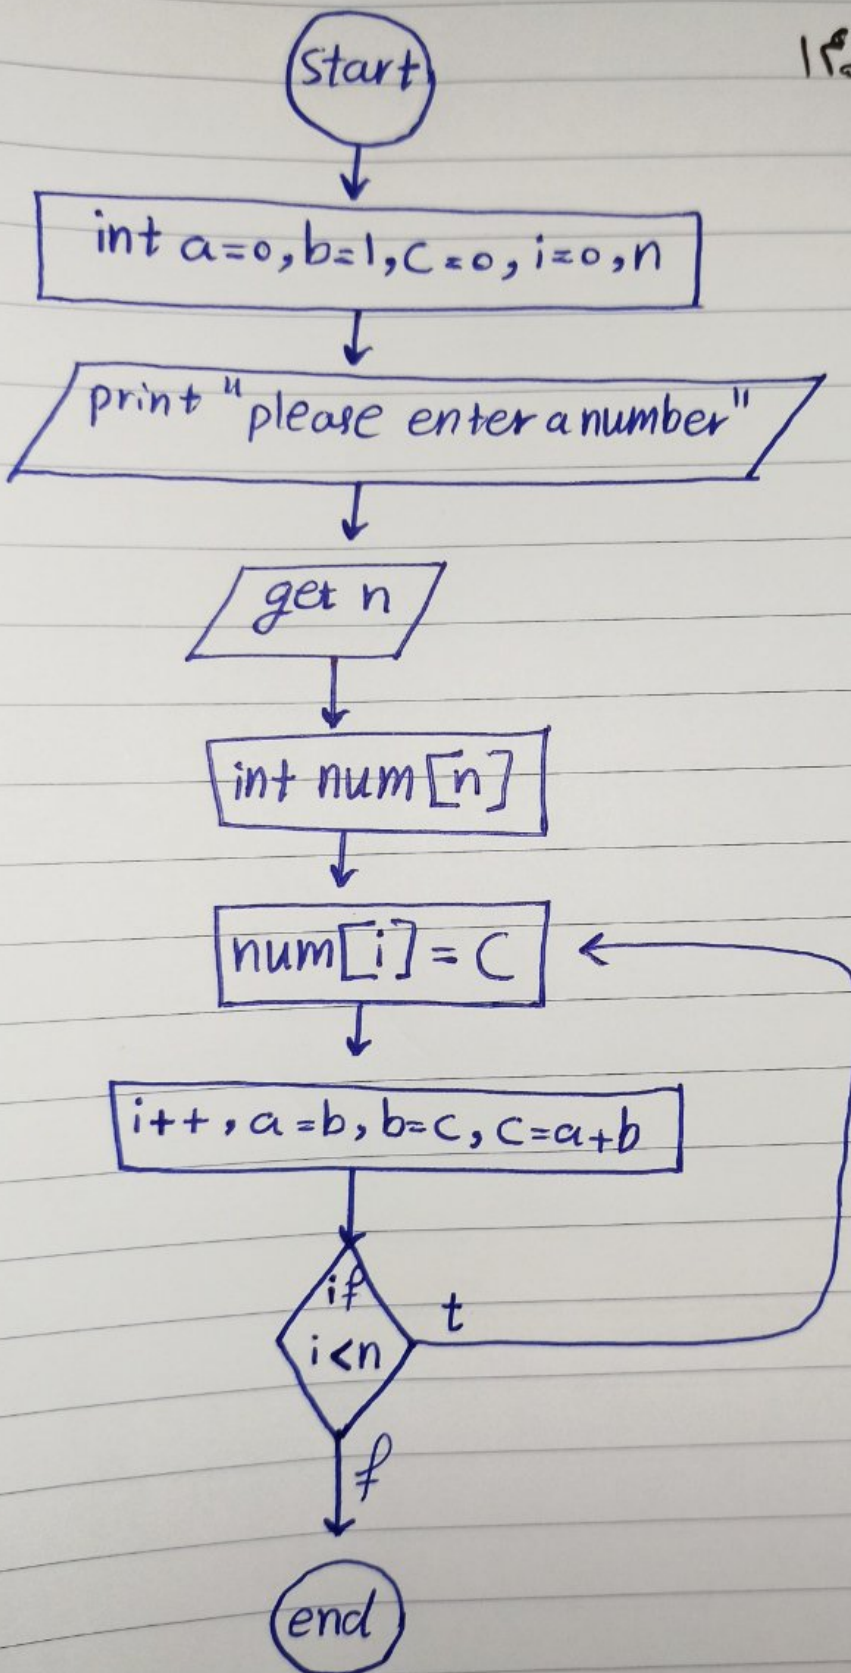 start
int a=0, b=1, c=0, i=0, n
print "please enter a number"
get n
int num[n]
num[i] = C
i++, a=b, b=c, c=a+b
if
i<n
t
f
end